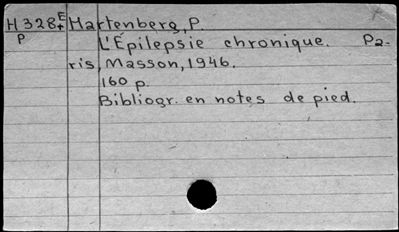 H328E+ Hartenberg, P.
P L'Épilepsie chronique. Pa-
ris, Masson, 1946.
160 p.
Bibliogr. en notes de pied.